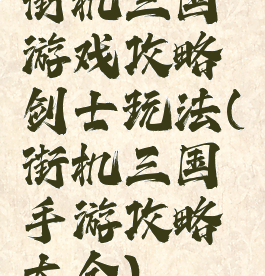 街机三国
游戏攻略
剑士玩法(
街机三国
手游攻略
大全)